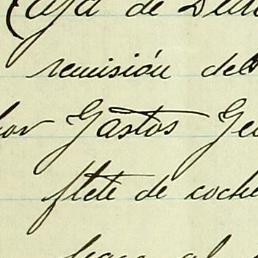 Caja de
remisión del
por Gastos Ge
flete de coche